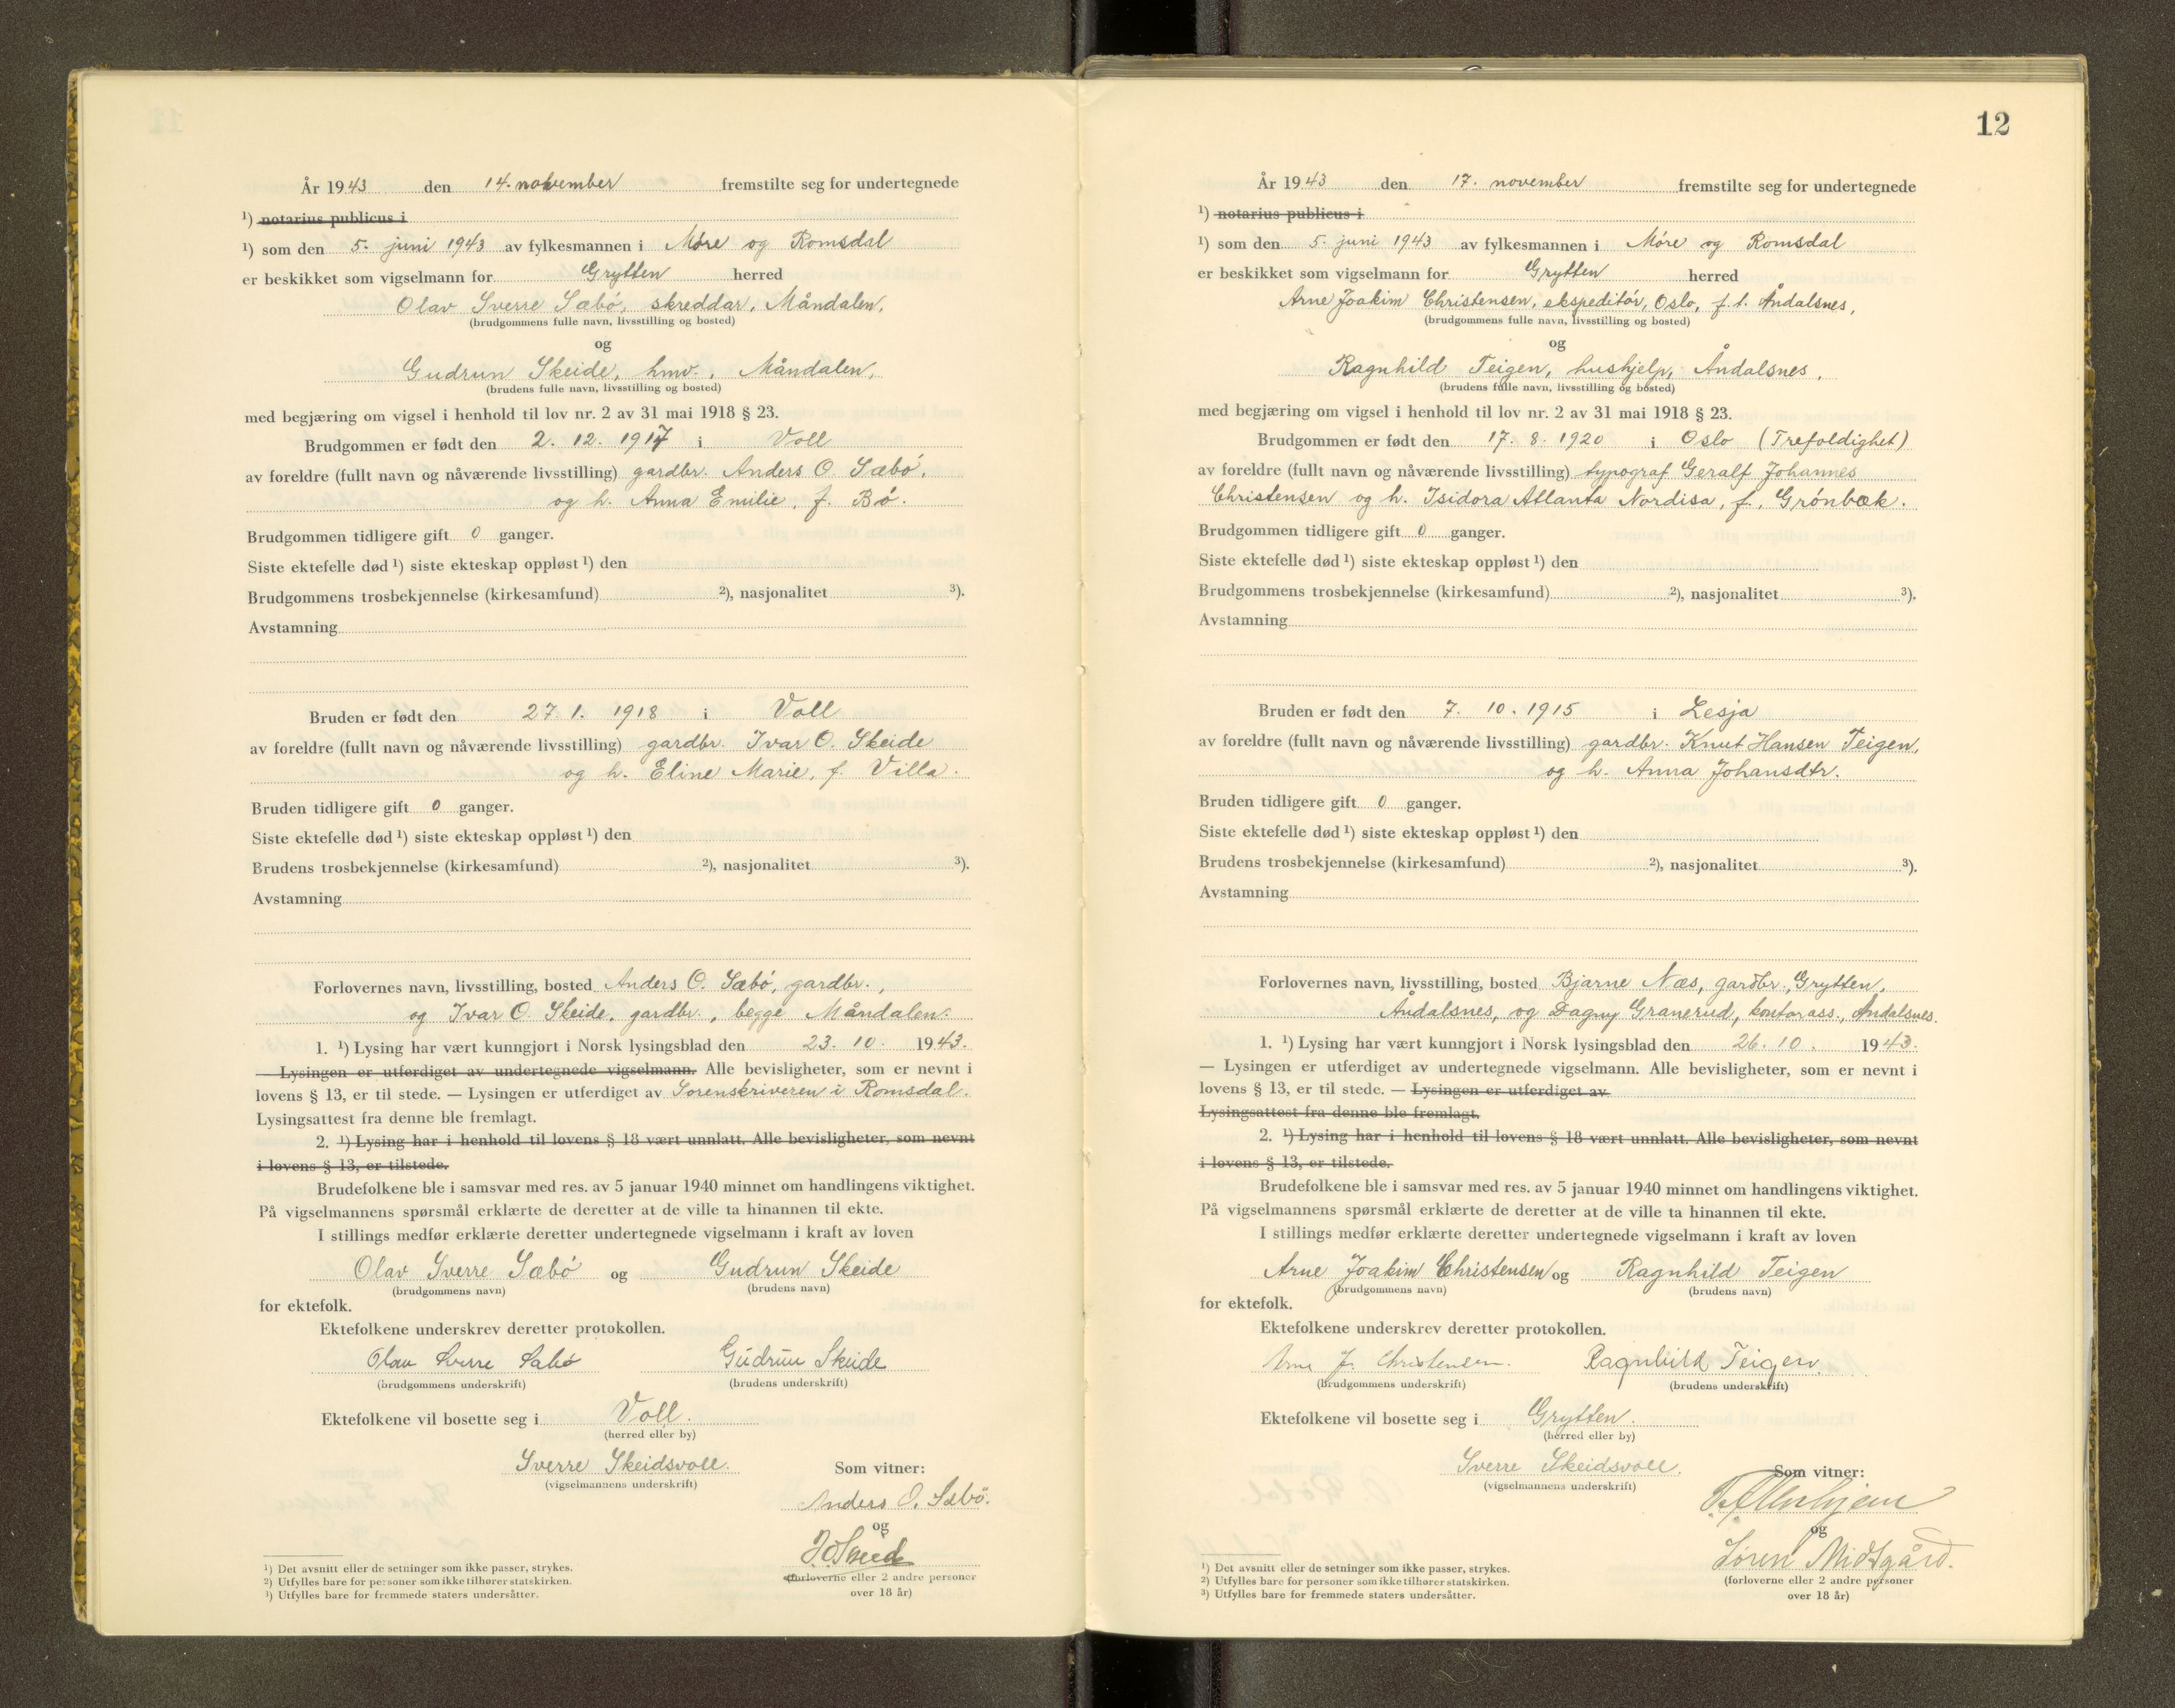 År 1943 den 14. november fremstilte seg for undertegnede
¹) notarius publicus i
¹) som den 5. juni 1943 av fylkesmannen i Møre og Romsdal
er beskikket som vigselmann for Grytten herred
Olav Sverre Sæbó, skreddar, Måndalen,
(brudgommens fulle navn, livsstilling og bosted)
og
Gudrun Skeide, hmv., Måndalen,
(brudens fulle navn, livsstilling og bosted)
med begjæring om vigsel i henhold til lov nr. 2 av 31 mai 1918 § 23.
Brudgommen er født den 2. 12. 1917 i Voll
av foreldre (fullt navn og nåværende livsstilling) gardbr. Anders O. Sæbó,
og h. Anna Emilie, f. Bó.
Brudgommen tidligere gift 0 ganger.
Siste ektefelle død ¹) siste ekteskap oppløst ¹) den
Brudgommens trosbekjennelse (kirkesamfund) ²), nasjonalitet ³).
Avstamning
Bruden er født den 27. 1. 1918 i Voll
av foreldre (fullt navn og nåværende livsstilling) gardbr. Ivar O. Skeide
og h. Eline Marie, f. Villa.
Bruden tidligere gift 0 ganger.
Siste ektefelle død ¹) siste ekteskap oppløst ¹) den
Brudens trosbekjennelse (kirkesamfund) ²), nasjonalitet ³).
Avstamning
Forlovernes navn, livsstilling, bosted Anders O. Sæbó, gardbr.,
og Ivar O. Skeide, gardbr., begge Måndalen.
1. ¹) Lysing har vært kunngjort i Norsk lysingsblad den 23. 10. 1943.
— Lysingen er utferdiget av undertegnede vigselmann. Alle bevisligheter, som er nevnt i
lovens § 13, er til stede. — Lysingen er utferdiget av Sorenskriveren i Romsdal.
Lysingsattest fra denne ble fremlagt.
2. ¹) Lysing har i henhold til lovens § 18 vært unnlatt. Alle bevisligheter, som nevnt
i lovens § 13, er tilstede.
Brudefolkene ble i samsvar med res. av 5 januar 1940 minnet om handlingens viktighet.
På vigselmannens spørsmål erklærte de deretter at de ville ta hinannen til ekte.
I stillings medfør erklærte deretter undertegnede vigselmann i kraft av loven
Olav Sverre Sæbó og Gudrun Skeide
(brudgommens navn) (brudens navn)
for ektefolk.
Ektefolkene underskrev deretter protokollen.
Olav Sverre Sæbø Gudrun Skeide
(brudgommens underskrift) (brudens underskrift)
Ektefolkene vil bosette seg i Voll.
(herred eller by)
Sverre Skeidsvoll. Som vitner:
(vigselmannens underskrift)
Anders O. Sæbö.
og
(forloverne eller 2 andre personer
over 18 år)
¹) Det avsnitt eller de setninger som ikke passer, strykes.
²) Utfylles bare for personer som ikke tilhører statskirken.
³) Utfylles bare for fremmede staters undersåtter.
12
År 1943 den 17. november fremstilte seg for undertegnede
¹) notarius publicus i
¹) som den 5. juni 1943 av fylkesmannen i Móre og Romsdal
er beskikket som vigselmann for Grytten herred
Arne Joakim Christensen, ekspeditór, Oslo, f.t. Åndalsnes,
(brudgommens fulle navn, livsstilling og bosted)
og
Ragnhild Teigen, hushjelp, Åndalsnes,
(brudens fulle navn, livsstilling og bosted)
med begjæring om vigsel i henhold til lov nr. 2 av 31 mai 1918 § 23.
Brudgommen er født den 17. 8. 1920 i Oslo (Trefoldighet)
av foreldre (fullt navn og nåværende livsstilling) typograf Geralf Johannes
Christensen og h. Isidora Atlanta Nordisa, f. Grónbæk.
Brudgommen tidligere gift 0 ganger.
Siste ektefelle død ¹) siste ekteskap oppløst ¹) den
Brudgommens trosbekjennelse (kirkesamfund) ²), nasjonalitet ³).
Avstamning
Bruden er født den 7. 10. 1915 i Lesja
av foreldre (fullt navn og nåværende livsstilling) gardbr. Knut Hansen Teigen,
og h. Anna Johansdtr.
Bruden tidligere gift 0 ganger.
Siste ektefelle død ¹) siste ekteskap oppløst ¹) den
Brudens trosbekjennelse (kirkesamfund) ²), nasjonalitet ³).
Avstamning
Forlovernes navn, livsstilling, bosted Bjarne Næs, gardbr., Grytten,
Åndalsnes, og Dagny Granerud, kontorass., Åndalsnes.
1. ¹) Lysing har vært kunngjort i Norsk lysingsblad den 26. 10. 1943.
— Lysingen er utferdiget av undertegnede vigselmann. Alle bevisligheter, som er nevnt i
lovens § 13, er til stede. — Lysingen er utferdiget av
Lysingsattest fra denne ble fremlagt.
2. ¹) Lysing har i henhold til lovens § 18 vært unnlatt. Alle bevisligheter, som nevnt
i lovens § 13, er tilstede.
Brudefolkene ble i samsvar med res. av 5 januar 1940 minnet om handlingens viktighet.
På vigselmannens spørsmål erklærte de deretter at de ville ta hinannen til ekte.
I stillings medfør erklærte deretter undertegnede vigselmann i kraft av loven
Arne Joakim Christensen og Ragnhild Teigen
(brudgommens navn) (brudens navn)
for ektefolk.
Ektefolkene underskrev deretter protokollen.
Arne J. Christensen. Ragnhild Teigen
(brudgommens underskrift) (brudens underskrift)
Ektefolkene vil bosette seg i Grytten.
(herred eller by)
Sverre Skeidsvoll. Som vitner:
(vigselmannens underskrift)
og
Sören Midtgård.
(forloverne eller 2 andre personer
over 18 år)
¹) Det avsnitt eller de setninger som ikke passer, strykes.
²) Utfylles bare for personer som ikke tilhører statskirken.
³) Utfylles bare for fremmede staters undersåtter.